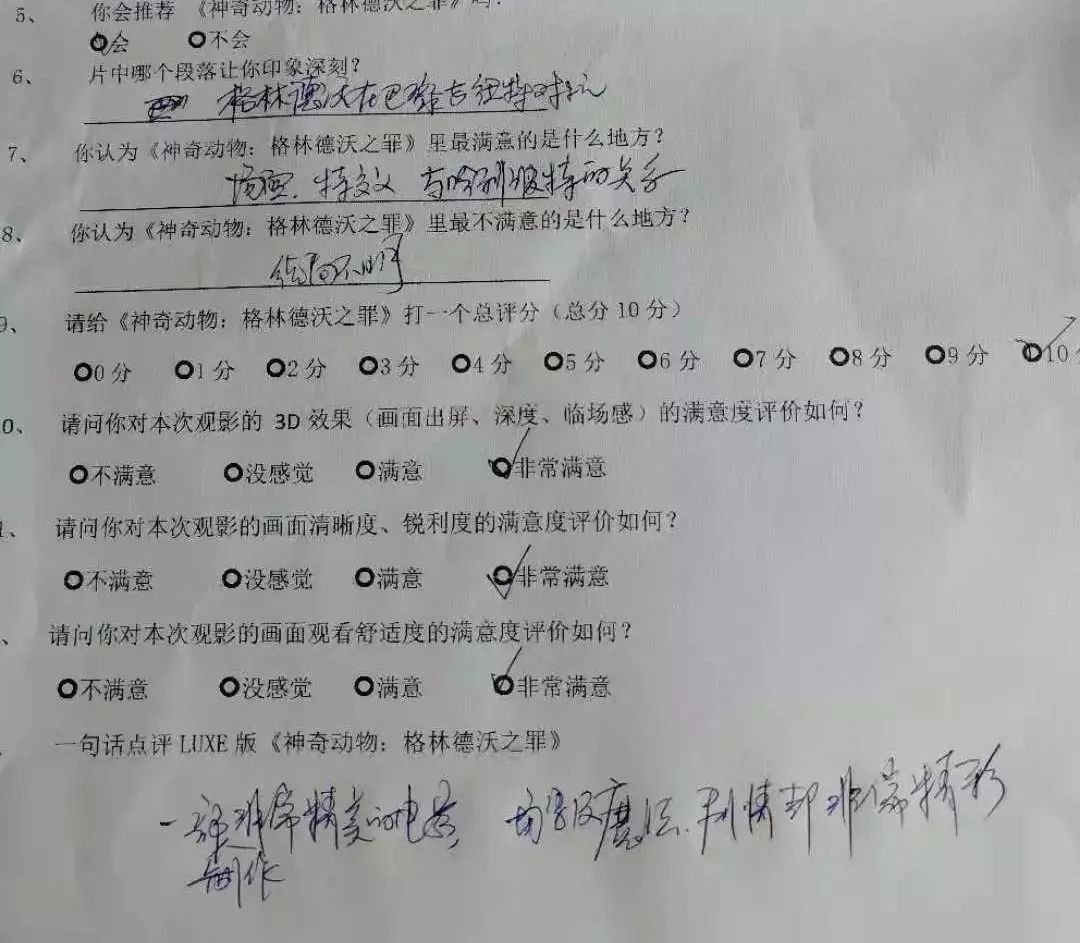 5、 你会推荐 《神奇动物：格林德沃之罪》吗？
会 不会
6、 片中哪个段落让你印象深刻？
格林德沃在巴黎与纽特对决
7、 你认为《神奇动物：格林德沃之罪》里最满意的是什么地方？
场面、特效 与哈利波特的关系
8、 你认为《神奇动物：格林德沃之罪》里最不满意的是什么地方？
结局不明
9、 请给《神奇动物：格林德沃之罪》打一个总评分（总分 10 分）
0 分 1 分 2 分 3 分 4 分 5 分 6 分 7 分 8 分 9 分 10
0、 请问你对本次观影的 3D 效果（画面出屏、深度、临场感）的满意度评价如何？
不满意 没感觉 满意 非常满意
1、 请问你对本次观影的画面清晰度、锐利度的满意度评价如何？
不满意 没感觉 满意 非常满意
、 请问你对本次观影的画面观看舒适度的满意度评价如何？
不满意 没感觉 满意 非常满意
一句话点评 LUXE 版《神奇动物：格林德沃之罪》
一部非常精美的电影， 场景及魔法、剧情都非常精彩
制作